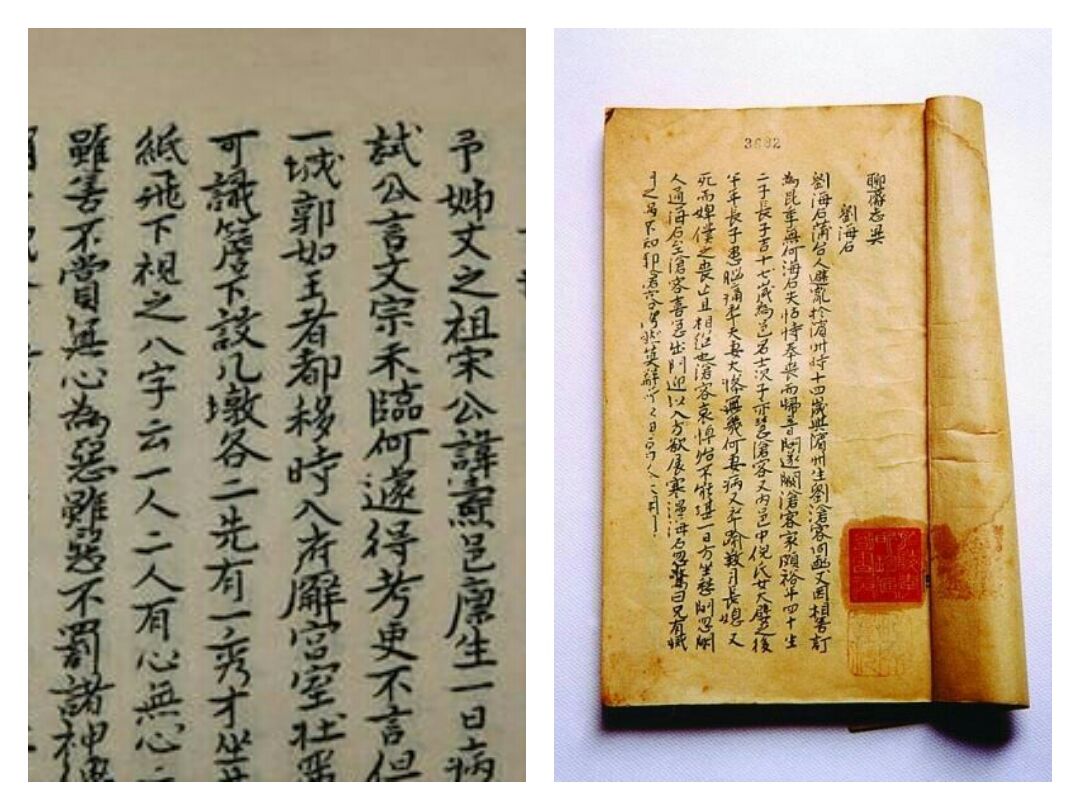 予姊丈之祖宋公諱燾邑廩生一日病
試公言文宗未臨何遽得考更不言但
一城郭如王者都移時入府廨宮室壯
可識簷下設几墩各二先有一秀才坐
紙飛下視之八字云一人二人有心無心
雖善不賞無心為惡雖惡不罰諸神
3682
聊齋志異
劉海石
劉海石蒲台人避亂於濱州時十四歲與濱州生劉滄客同函丈因相善訂
為昆季無何海石失怙恃奉喪而歸音問遂闕滄客家頗裕年四十生
二子長子吉十七歲為邑名士次子亦慧滄客又內邑中倪氏女大嬖之後
半年長子患腦痛卒夫妻大慘無幾何妻病又卒踰數月長媳又
死而婢僕之喪亡且相繼也滄客哀悼殆不能堪一日方坐愁間忽閽
人通海石至滄客喜急出門迎以入方欲展寒溫海石忽驚曰兄有滅